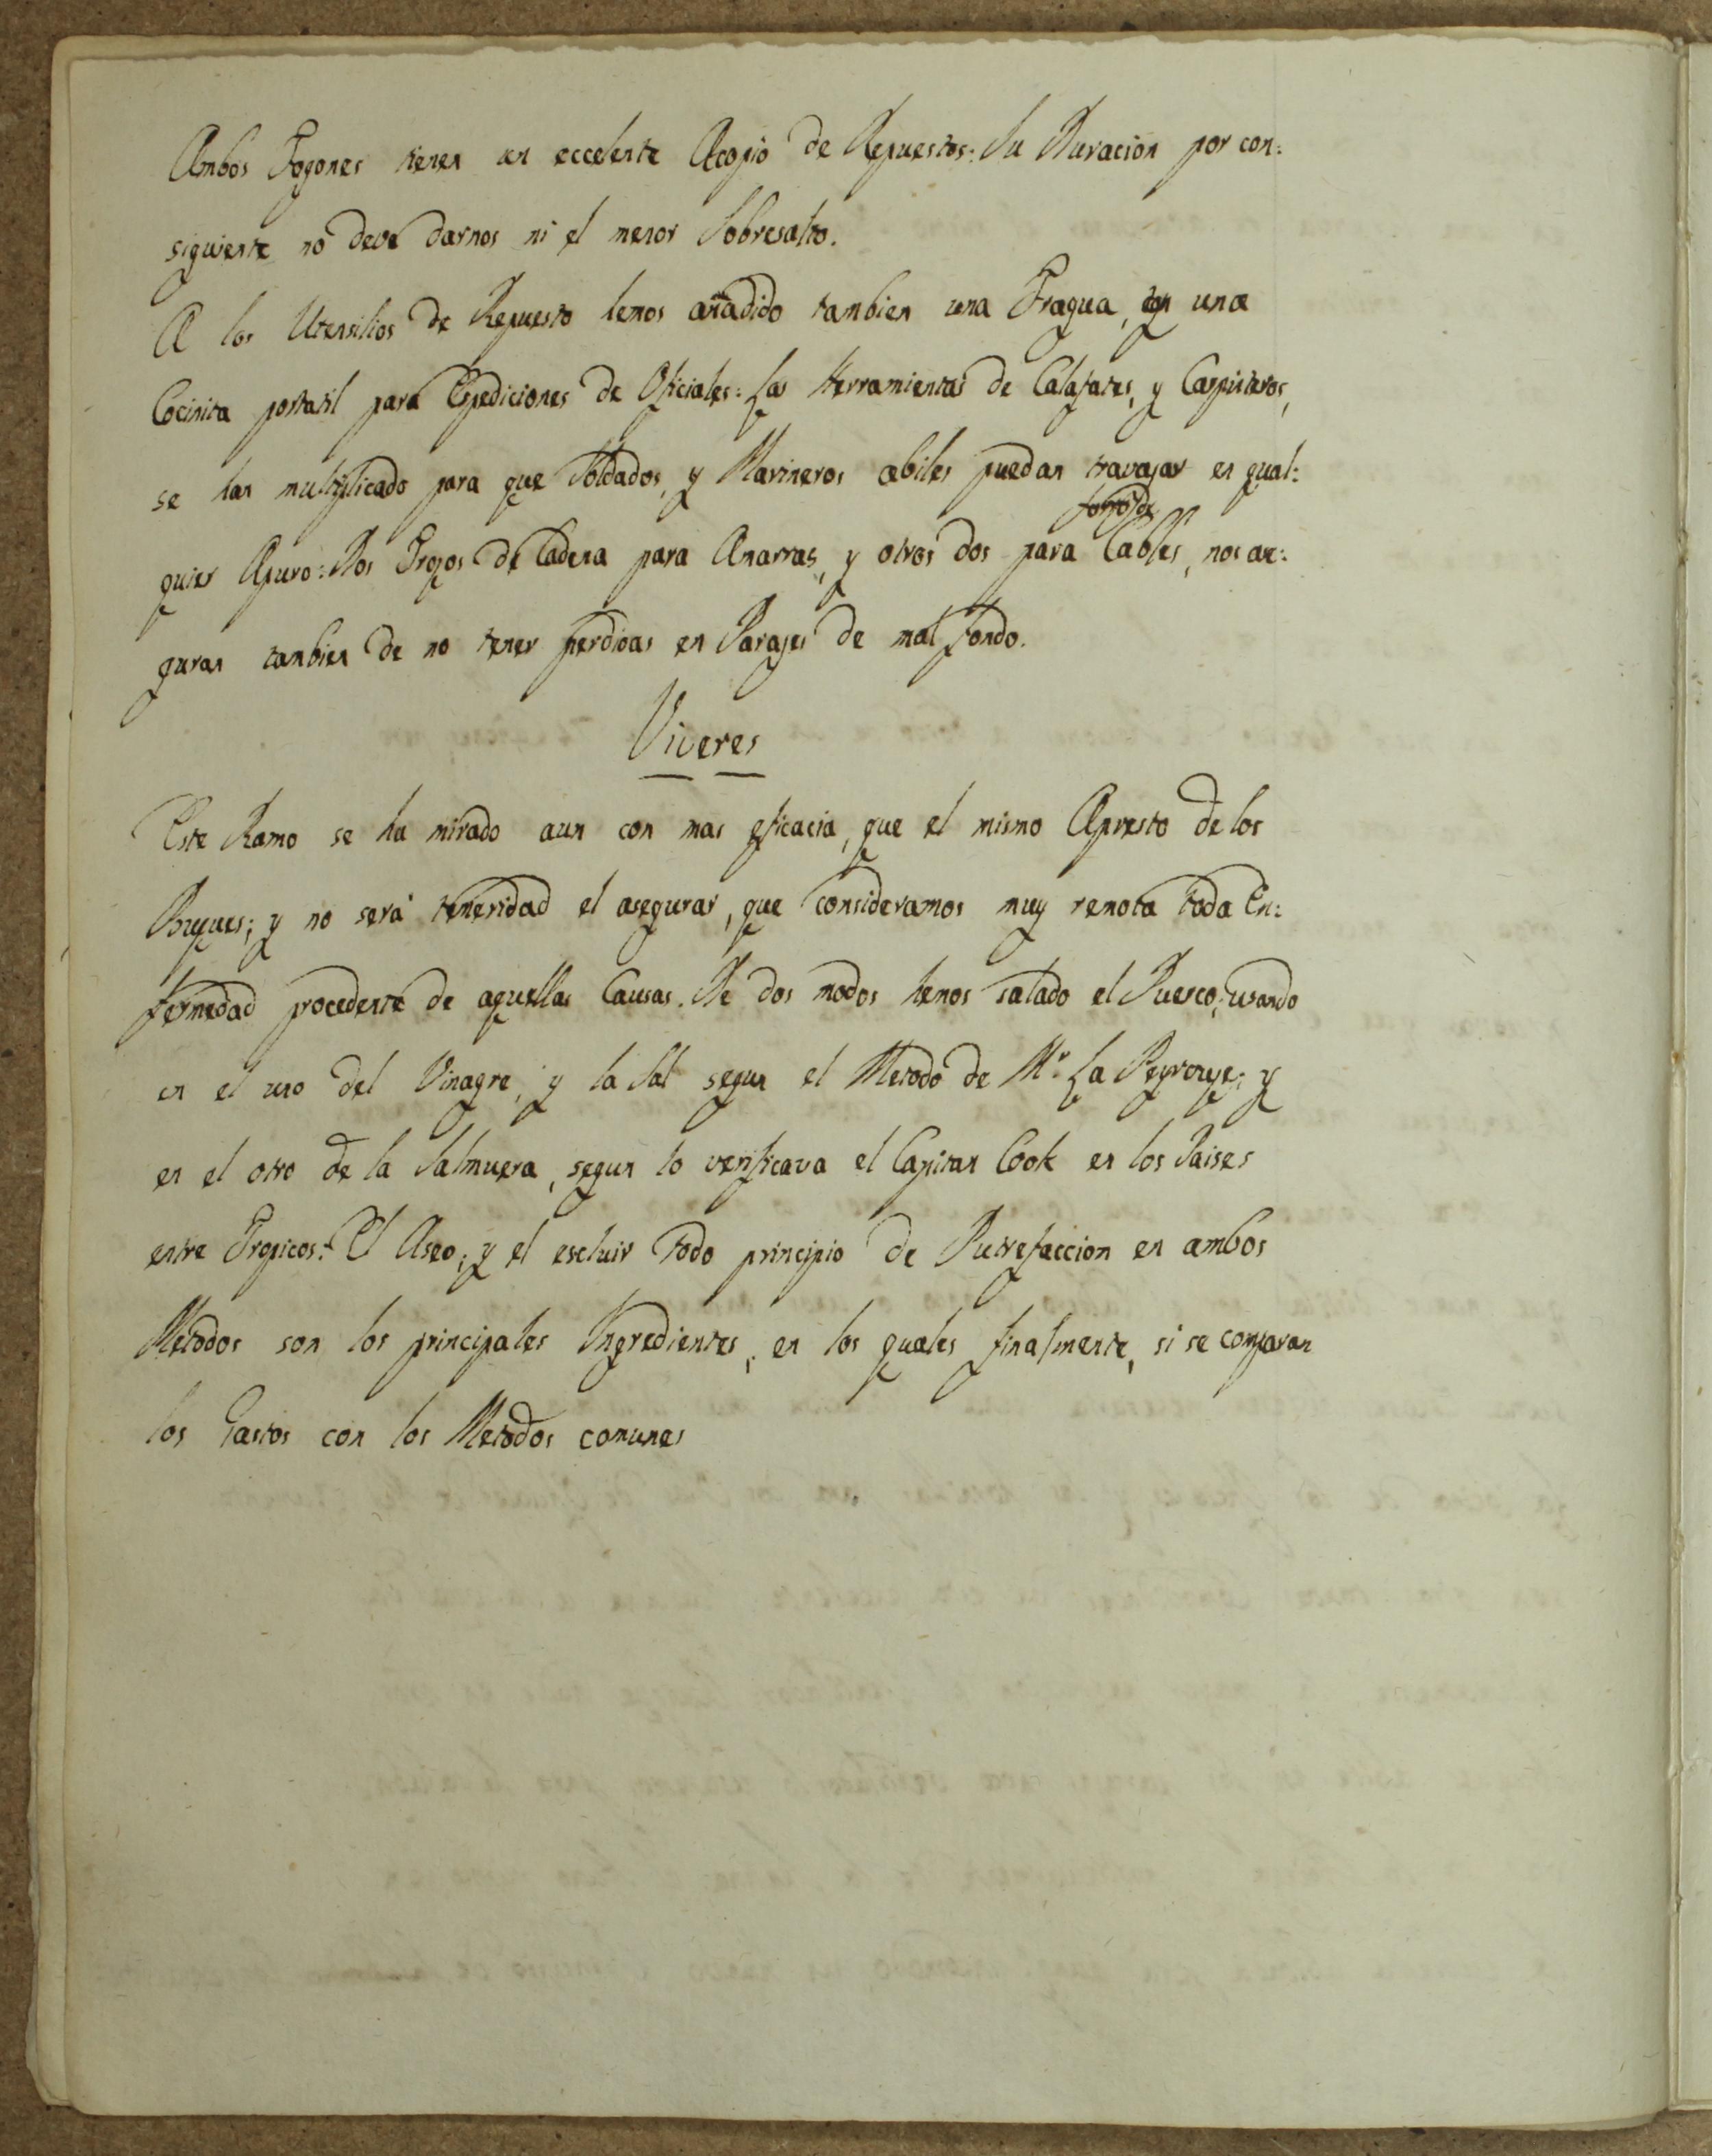 Ambos Fogones tienen un eccelente Acopio de Repuestos: Su Duracion por con:
siguiente no deve darnos ni el menor Sobresalto.
A los Utensilios de Repuesto hemos añadido tambien una Fragua, con una
Cocinita portatil para Espediciones de Oficiales: Las Herramientas de Calafates, y Carpinteros,
se han multiplicado para que Soldados, y Marineros abiles puedan travajar en qual:
forro de
quier Apuro: Dos Trozos de Cadena para Amarras, y otros dos para Cables, nos ase:
guran tambien de no tener perdidas en Parajes de mal fondo.
Viveres
Este Ramo se ha mirado aun con mas eficacia, que el mismo Apresto de los
Buques; y no será temeridad el asegurar, que consideramos muy remota toda En:
fermedad procedente de aquellas Causas. De dos modos hemos salado el Puerco, usando
en el uno del Vinagre, y la Sal segun el Metodo de Mr. La Peyrouse; y
en el otro de la Salmuera, segun lo verificava el Capitan Cook en los Paises
entre Tropicos: El Aseo; y el escluir todo principio de Putrefaccion en ambos
Metodos son los principales Ingredientes, en los quales finalmente, si se comparan
los Gastos con los Metodos comunes